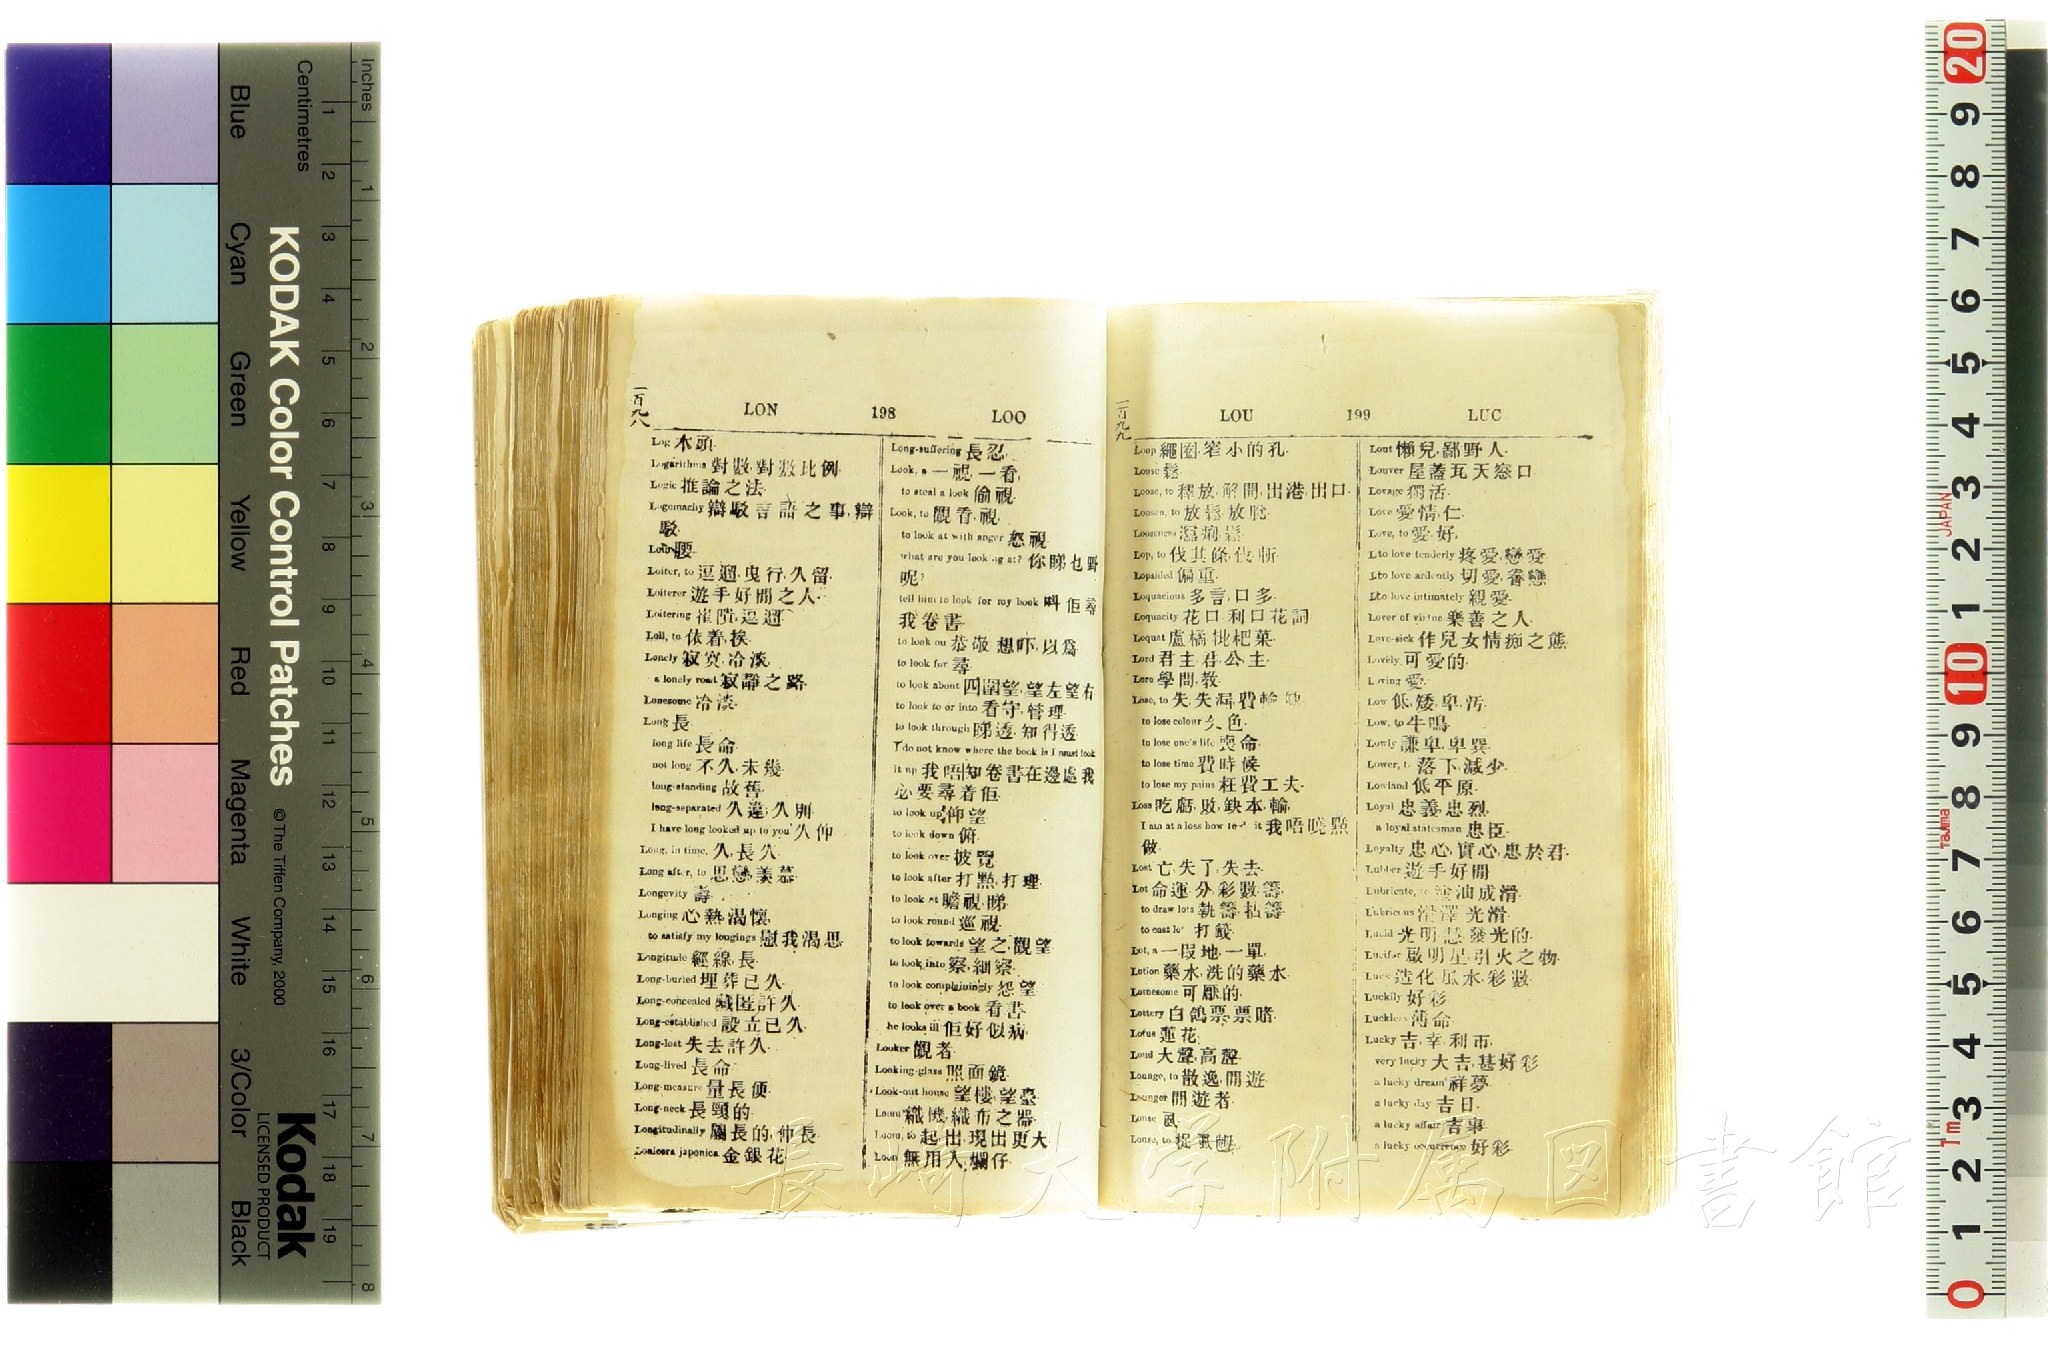 Inches
Centimetres
Blue
Cyan
Green
Yellow
Red
Magenta
White
3/Color
Black
KODAK Color Control Patches
© The Tiffen Company, 2000
Kodak
LICENSED PRODUCT
一百九八
LON 198 LOO
Log 木頭
Logarithms 對數,對數比例
Logic 推論之法
Logomachy 辯駁言語之事,辯
駁
Loin 腰
Loiter, to 逗遛,曳行,久留
Loiterer 遊手好閒之人
Loitering
Loll, to 依着,挨
Lonely 寂寞,冷淡
a lonely road 寂靜之路
Lonesome 冷淡
Long 長
long life 長命
not long 不久,未幾
long-standing 故舊
long-separated 久違,久別
I have long looked up to you 久仰
Long, in time, 久,長久
Long after, to 思戀,羨慕
Longevity 壽
Longing 心熱,渴懷
to satisfy my longings 慰我渴思
Longitude 經線,長
Long-buried 埋葬已久
Long-concealed 藏匿許久
Long-established 設立已久
Long-lost 失去許久
Long-lived 長命
Long-measure 量長便
Long-neck 長頸的
Longitudinally 屬長的,伸長
Lonicera japonica 金銀花
Long-suffering 長忍
Look, a 一視,一看
to steal a look 偷視
Look, to 觀看,視
to look at with anger 怒視
what are you looking at? 你睇乜野
呢?
tell him to look for my book 呌佢尋
我卷書
to look on 恭敬,想吓,以爲
to look for 尋
to look about 四圍望,望左望右
to look to or into 看守,管理
to look through 睇透,知得透
I do not know where the book is I must look
it up 我唔知卷書在邊處我
必要尋着佢
to look up 仰望
to look down 俯
to look over 披覽
to look after 打點,打理
to look at 瞻視,睇
to look round 巡視
to look towards 望之,觀望
to look into 察,細察
to look complainingly 怨望
to look over a book 看書
he looks ill 佢好似病
Looker 觀者
Looking-glass 照面鏡
Look-out house 望樓,望臺
Loom 織機,織布之器
Loom, to 起出,現出更大
Loon 無用人,爛仔
一百九九
LOU 199 LUC
Loop 繩圈,窄小的孔
Loose 鬆
Loose, to 釋放,解開,出港,出口
Loosen, to 放鬆,放脫
Looseness
Lop, to 伐其條,伐斬
Lopsided 偏重
Loquacious 多言,口多
Loquacity 花口,利口,花詞
Loquat 盧橘,枇杷菓
Lord 君主,君,公,主
Lore 學問,教
Lose, to 失,失漏,費,輸
to lose colour 失色
to lose one's life 喪命
to lose time 費時候
to lose my pains 枉費工夫
Loss 吃虧,敗,缺本,輸
I am at a loss how to it 我唔曉點
做
Lost 亡,失了,失去
Lot 命運,分,彩數,籌
to draw lots 執籌,拈籌
to cast lot 打籤
Lot, a 一段地,一單
Lotion 藥水,洗的藥水
Lothesome 可厭的
Lottery 白鴿票,票賭
Lotus 蓮花
Loud 大聲,高聲
Lounge, to 散逸,閒遊
Lounger 閒遊者
Louse 虱
Louse, to 捉虱乸
Lout 懶兒,鄙野人
Louver 屋蓋瓦天窓口
Lovage 獨活
Love 愛情,仁
Love, to 愛,好
to love tenderly 疼愛,戀愛
to love ardently 切愛,眷戀
to love intimately 親愛
Lover of virtue 樂善之人
Love-sick 作兒女情痴之態
Lovely 可愛的
Loving 愛
Low 低,矮,卑,汚
Low, to 牛鳴
Lowly 謙卑,卑巽
Lower, to 落下,減少
Lowland 低平原
Loyal 忠義,忠烈
a loyal statesman 忠臣
Loyalty 忠心,實心,忠於君
Lubber 遊手好閒
Lubricate, to 油成滑
Lubricous 滑澤,光滑
Lucid 光明,慧,發光的
Lucifer 啟明星,引火之物
Luck 造化,風水,彩數
Luckily 好彩
Luckless 薄命
Lucky 吉,幸,利市
very lucky 大吉,甚好彩
a lucky dream 祥夢
a lucky day 吉日
a lucky affair 吉事
a lucky occurrence 好彩
長崎大学附属図書館
JAPAN
Tajima
1m